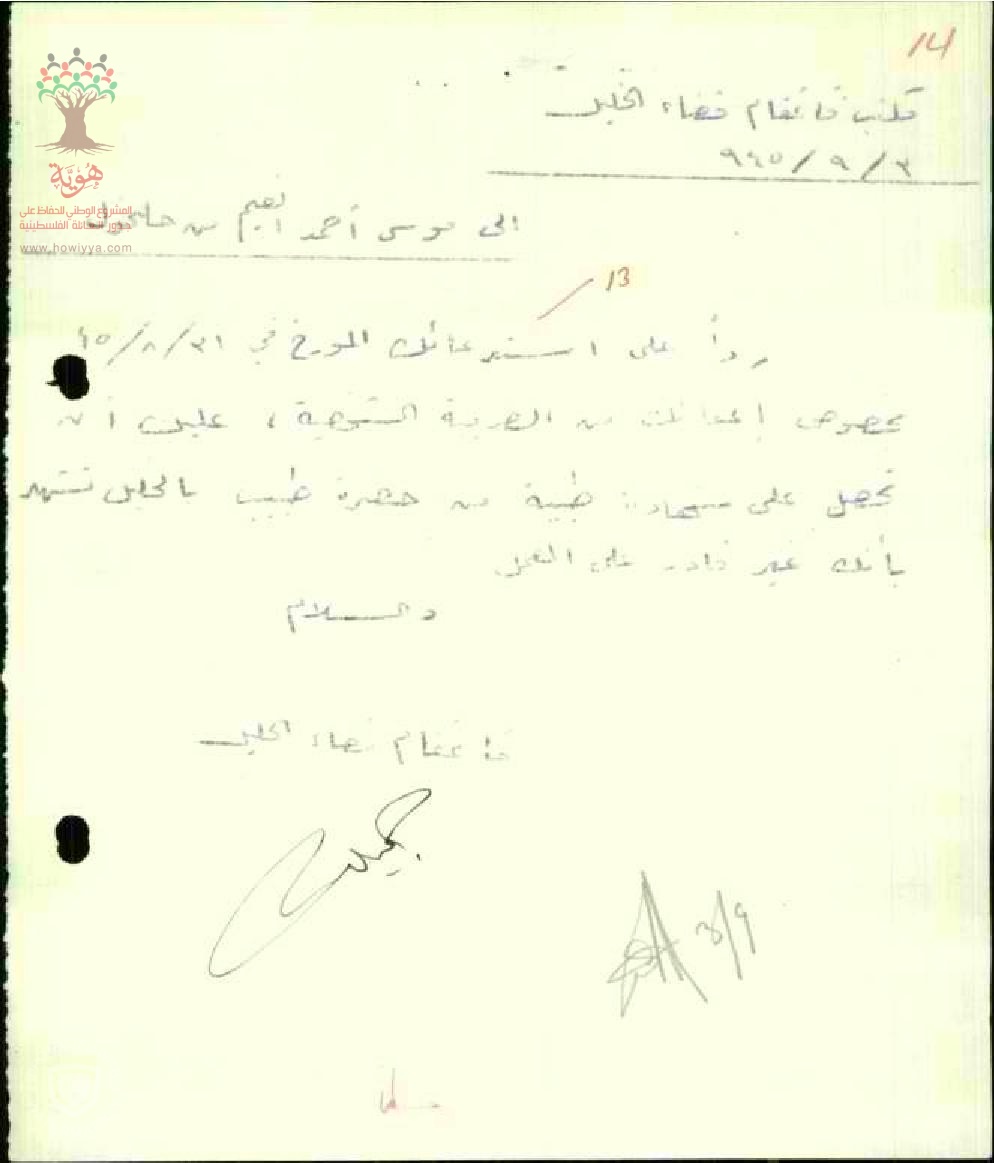 14
مكتب قائمقام قضاء الخليل
٩٤٥/٩/٣
هُويّة
المشروع الوطني للحفاظ على
جذور العائلة الفلسطينية
www.howiyya.com
الى موسى أحمد من حلحول
13
رداً على استدعائك المؤرخ في ٤٥/٨/٣١
بخصوص إعفائك من الضريبة ، عليك أن
تحصل على شهادة طبية من حضرة طبيب بالخليل تشهد
بأنك غير قادر على العمل
والسلام
قائمقام قضاء الخليل
3/9